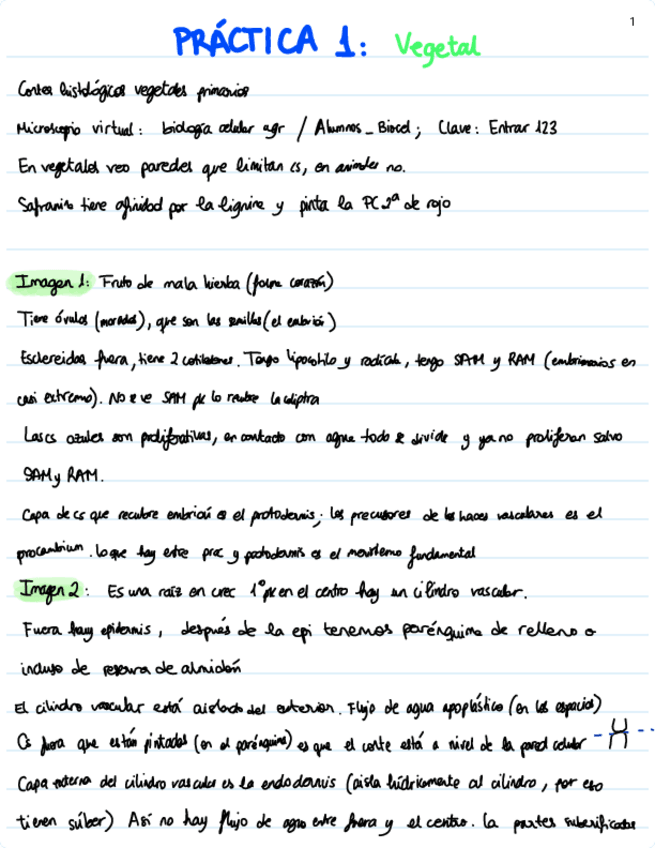 1
PRÁCTICA 1: Vegetal
Cortes histológicos vegetales primarios
Microscopio virtual: biología celular agr / Alumnos_Biocel; Clave: Entrar 123
En vegetales veo paredes que limitan cs, en animales no.
Safranina tiene afinidad por la lignina y pinta la PC 2ª de rojo
Imagen 1: Fruto de mala hierba (forma corazón)
Tiene óvulos (morados), que son las semillas (el embrión)
Esclereidas fuera, tiene 2 cotiledones. Tengo hipocótilo y radícula, tengo SAM y RAM (embrionarios en
casi extremo). No se ve SAM pk lo recubre la caliptra
Las cs azules son proliferativas, en contacto con agua todo se divide y ya no proliferan salvo
SAM y RAM.
Capa de cs que recubre embrión es el protodermis; los precusores de los haces vasculares es el
procambium. lo que hay entre proc y protodermis es el meristemo fundamental
Imagen 2: Es una raíz en crec 1º pk en el centro hay un cilindro vascular.
Fuera hay epidermis, después de la epi tenemos parénquima de relleno o
incluso de reserva de almidón
El cilindro vascular está aislado del exterior. Flujo de agua apoplástico (en los espacios)
Cs fuera que están pintadas (en el parénquima) es que el corte está a nivel de la pared celular
Capa externa del cilindro vascular es la endodermis (aisla hídricamente al cilindro, por eso
tienen súber) Así no hay flujo de agua entre fuera y el centro. La partes suberificadas